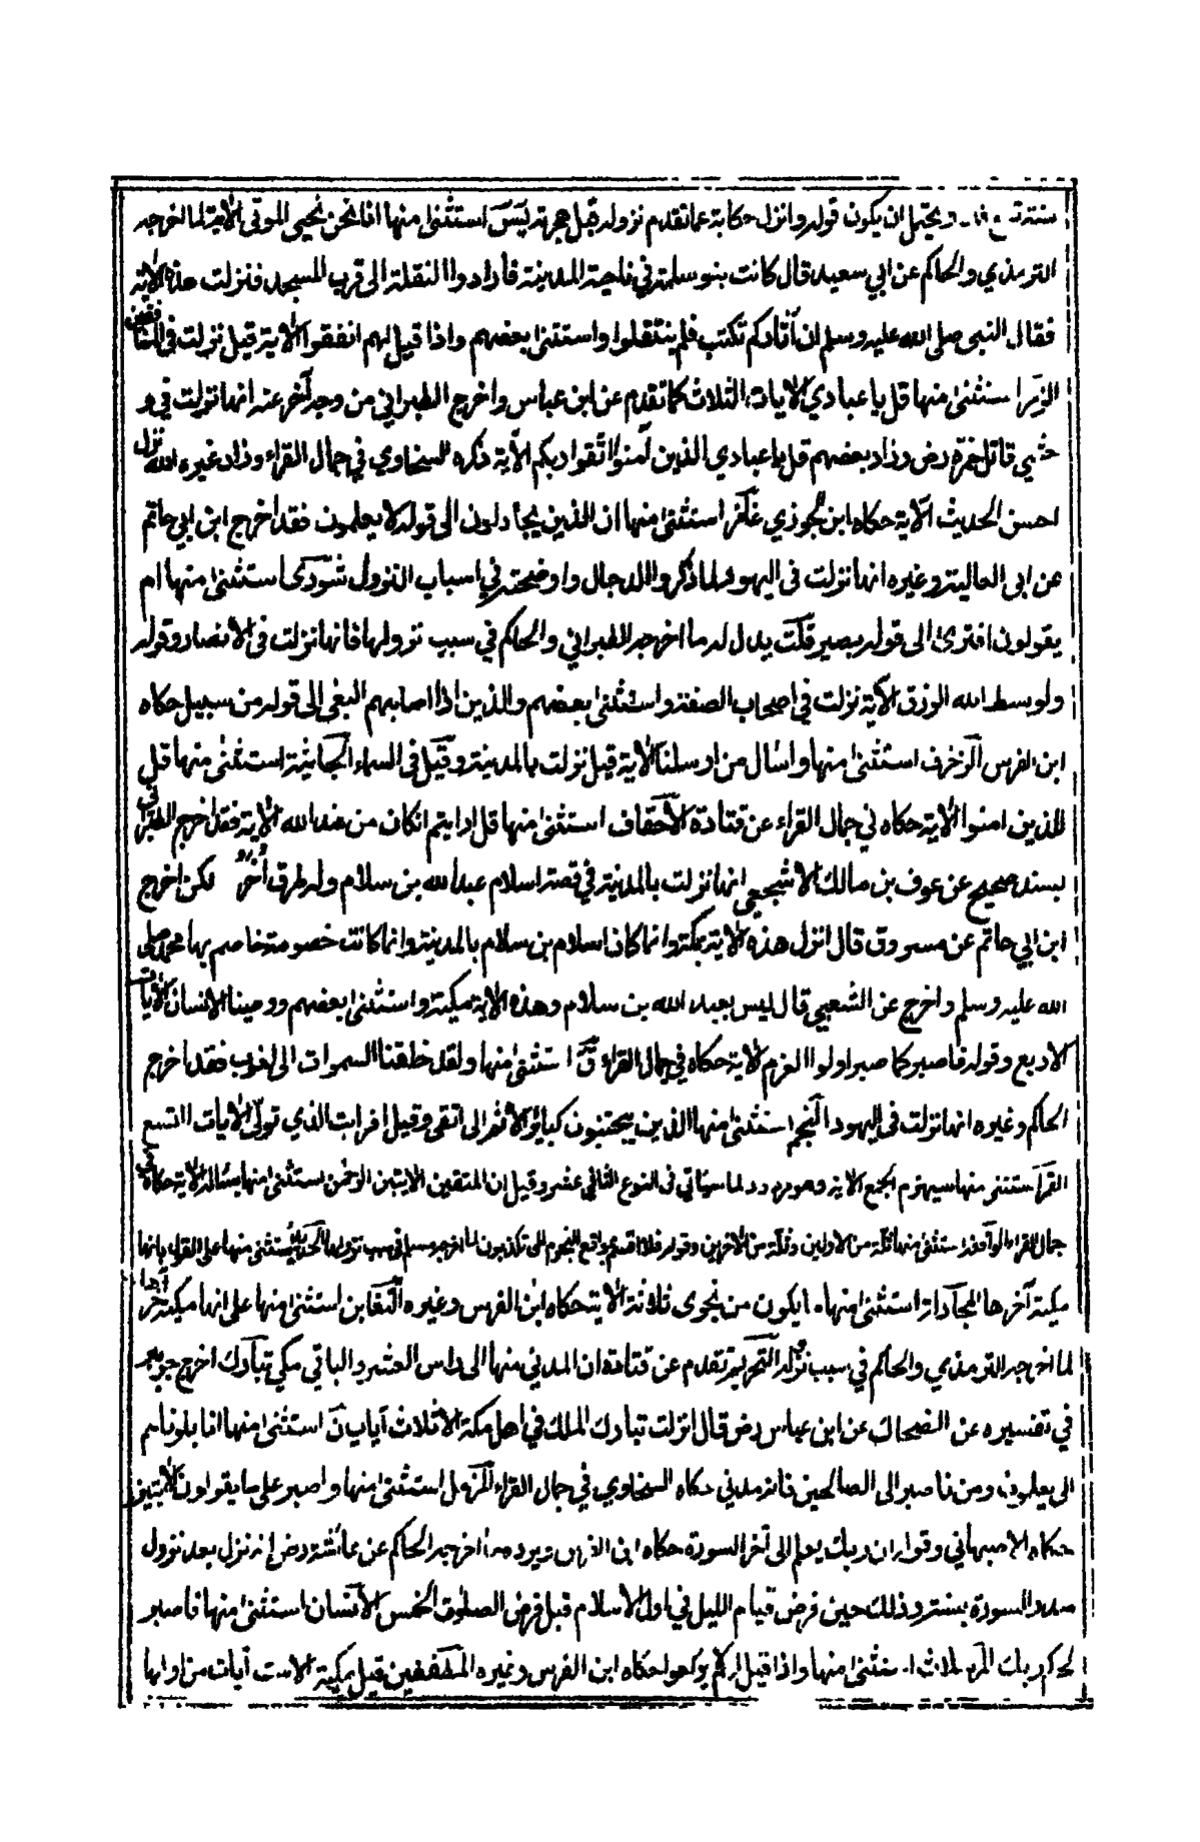 ويحتمل ان يكون قوله وانزل حكاية عما تقدم نزوله قبل هجرته يس استثنى منها انا نحن نحيي الموتى الاية لما اخرجه
الترمذي والحاكم عن ابي سعيد قال كانت بنو سلمة في ناحية المدينة فارادوا النقلة الى قرب المسجد فنزلت هذه الاية
فقال النبي صلى الله عليه وسلم ان آثاركم تكتب فلم ينتقلوا واستثنى بعضهم واذا قيل لهم انفقوا الاية قيل نزلت في المنافقين
الزمر استثنى منها قل يا عبادي الايات الثلاث كما تقدم عن ابن عباس واخرج الطبراني من وجه آخر عنه انها نزلت في و
حشي قاتل حمزة رض وزاد بعضهم قل يا عبادي الذين آمنوا اتقوا ربكم الآية ذكره السخاوي في جمال القراء وزاد غيره الله نزل
احسن الحديث الآية حكاه ابن الجوزي غافر استثنى منها ان الذين يجادلون الى قوله لا يعلمون فقد اخرج ابن ابي حاتم
عن ابي العالية وغيره انها نزلت في اليهود لما ذكروا الدجال واوضحته في اسباب النزول شورى استثنى منها ام
يقولون افترى الى قوله بصير قلت يدل له ما اخرجه الطبراني والحاكم في سبب نزولها فانها نزلت في الانصار وقوله
ولو بسط الله الرزق الآية نزلت في اصحاب الصفة واستثنى بعضهم والذين اذا اصابهم البغي الى قوله من سبيل حكاه
ابن الفرس الزخرف استثنى منها واسال من ارسلنا الاية قيل نزلت بالمدينة وقيل في السماء الجاثية استثنى منها قل
للذين امنوا الاية حكاه في جمال القراء عن قتادة الاحقاف استثنى منها قل ارايتم ان كان من عند الله الاية فقد اخرج الطبراني
بسند صحيح عن عوف بن مالك الاشجعي انها نزلت بالمدينة في قصة اسلام عبد الله بن سلام وله طرق اخر لكن اخرج
ابن ابي حاتم عن مسروق قال انزل هذه الاية بمكة وانما كان اسلام بن سلام بالمدينة وانما كانت خصومة خاصم بها محمد صلى
الله عليه وسلم واخرج عن الشعبي قال ليس بعبد الله بن سلام وهذه الاية مكية واستثنى بعضهم ووصينا الانسان الآيات
الاربع وقوله فاصبر كما صبر اولوا العزم الاية حكاه في جمال القراء ق استثنى منها ولقد خلقنا السموات الى لغوب فقد اخرج
الحاكم وغيره انها نزلت في اليهود النجم استثنى منها الذين يجتنبون كبائر الاثم الى اتقى وقيل افرايت الذي تولى الايات التسع
القمر استثنى منها سيهزم الجمع الاية وهو مردود لما سياتي في النوع الثاني عشر وقيل ان المتقين الايتين الرحمن استثنى منها يساله الاية حكاه في
جمال القراء الواقعة استثنى منها ثلة من الاولين وثلة من الآخرين وقوله فلا اقسم بمواقع النجوم الى تكذبون لما اخرجه مسلم في سبب نزولها الحديد يستثنى منها على القول بانها
مكية آخرها المجادلة استثنى منها ما يكون من نجوى ثلاثة الاية حكاه ابن الفرس وغيره التغابن استثنى منها على انها مكية آخرها
لما اخرجه الترمذي والحاكم في سبب نزوله التحريم تقدم عن قتادة ان المدني منها الى راس العشر والباقي مكي تبارك اخرج جويبر
في تفسيره عن الضحاك عن ابن عباس رض قال انزلت تبارك الملك في اهل مكة الا ثلاث آيات ن استثنى منها انا بلوناهم
الى يعلمون ومن فاصبر الى الصالحين فانه مدني حكاه السخاوي في جمال القراء المزمل استثنى منها واصبر على ما يقولون الآيتين
حكاه الاصبهاني وقوله ان ربك يعلم الى آخر السورة حكاه ابن الفرس ويرده ما اخرجه الحاكم عن عائشة رض انه نزل بعد نزول
صدر السورة بسنة وذلك حين فرض قيام الليل في اول الاسلام قبل فرض الصلوات الخمس الانسان استثنى منها فاصبر
لحكم ربك المرسلات استثنى منها واذا قيل لهم اركعوا حكاه ابن الفرس وغيره المطففين قيل مكية الا ست آيات من اولها